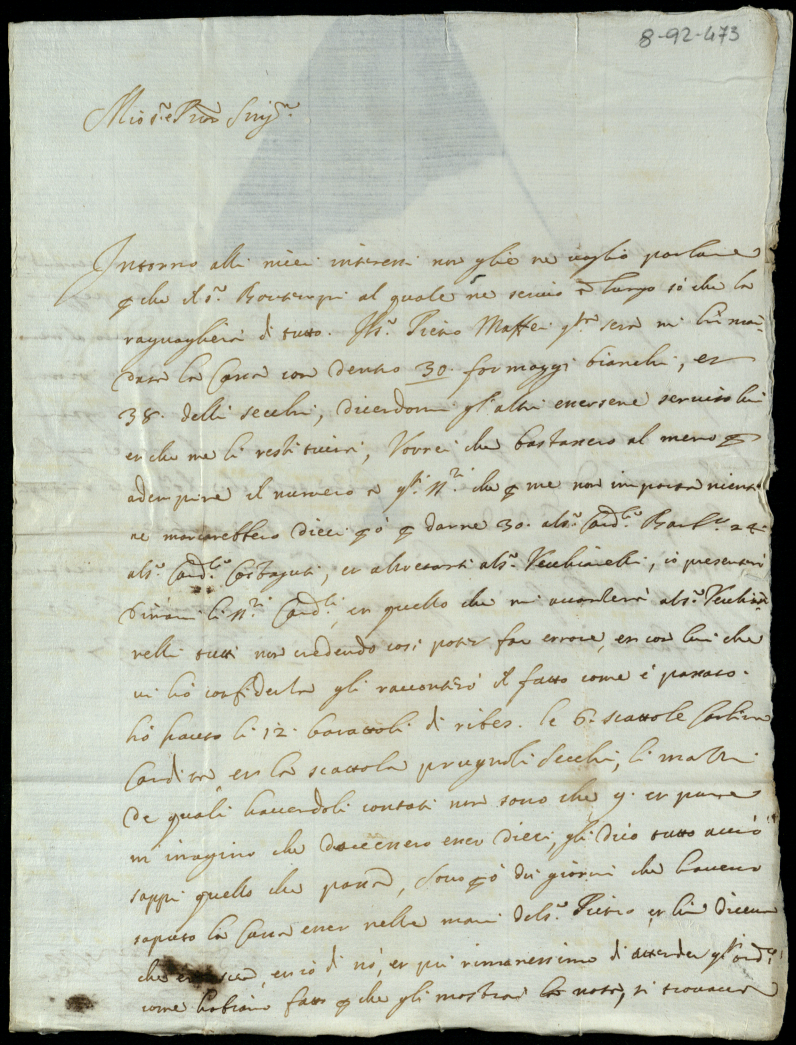 8-92-473
Mio S.re e Pron Sing.re
Intorno alli miei interessi non glie ne voglio parlare
che il S.r al quale ne scrivo a lungo sò che la
raguaglierà di tutto. Il S.r Pietro Maffei sera mi hà man
data la Cassa con dentro 30. formaggi bianchi, et
38. delli secchi, dicendomi gl'altri essersene servito lui
et che me li restituirà, Vorrei che bastassero al meno
adempire il numero a che me non importa niente
ne mancarebbero dieci darne 30. al S.r Card.le 24
al S.r Card.le et altretanti al S.r Vecchiarelli, io presenterò
li Card.li, et quello che mi al S.r Vechia
relli tutti non credendo così poter far errore, et con lui che
vi hò confidenza gli racconterò il fatto come è passato.
hò hauto li 12. barattoli di ribes. le 6. scattole
Candita, et la scattola prugnoli secchi, li mazzi
de quali havendoli contati non sono che 9. et pure
m'imagino che dovessero esser dieci, gli dico tutto acciò
sappi quello che passa, Sono dui giorni che havevo
saputo la Cassa esser nelle mani del S.r Pietro et lui diceva
che di nò, et poi rimanessimo di attender
come habiamo fatto che gli mostrai la nota, si trovava